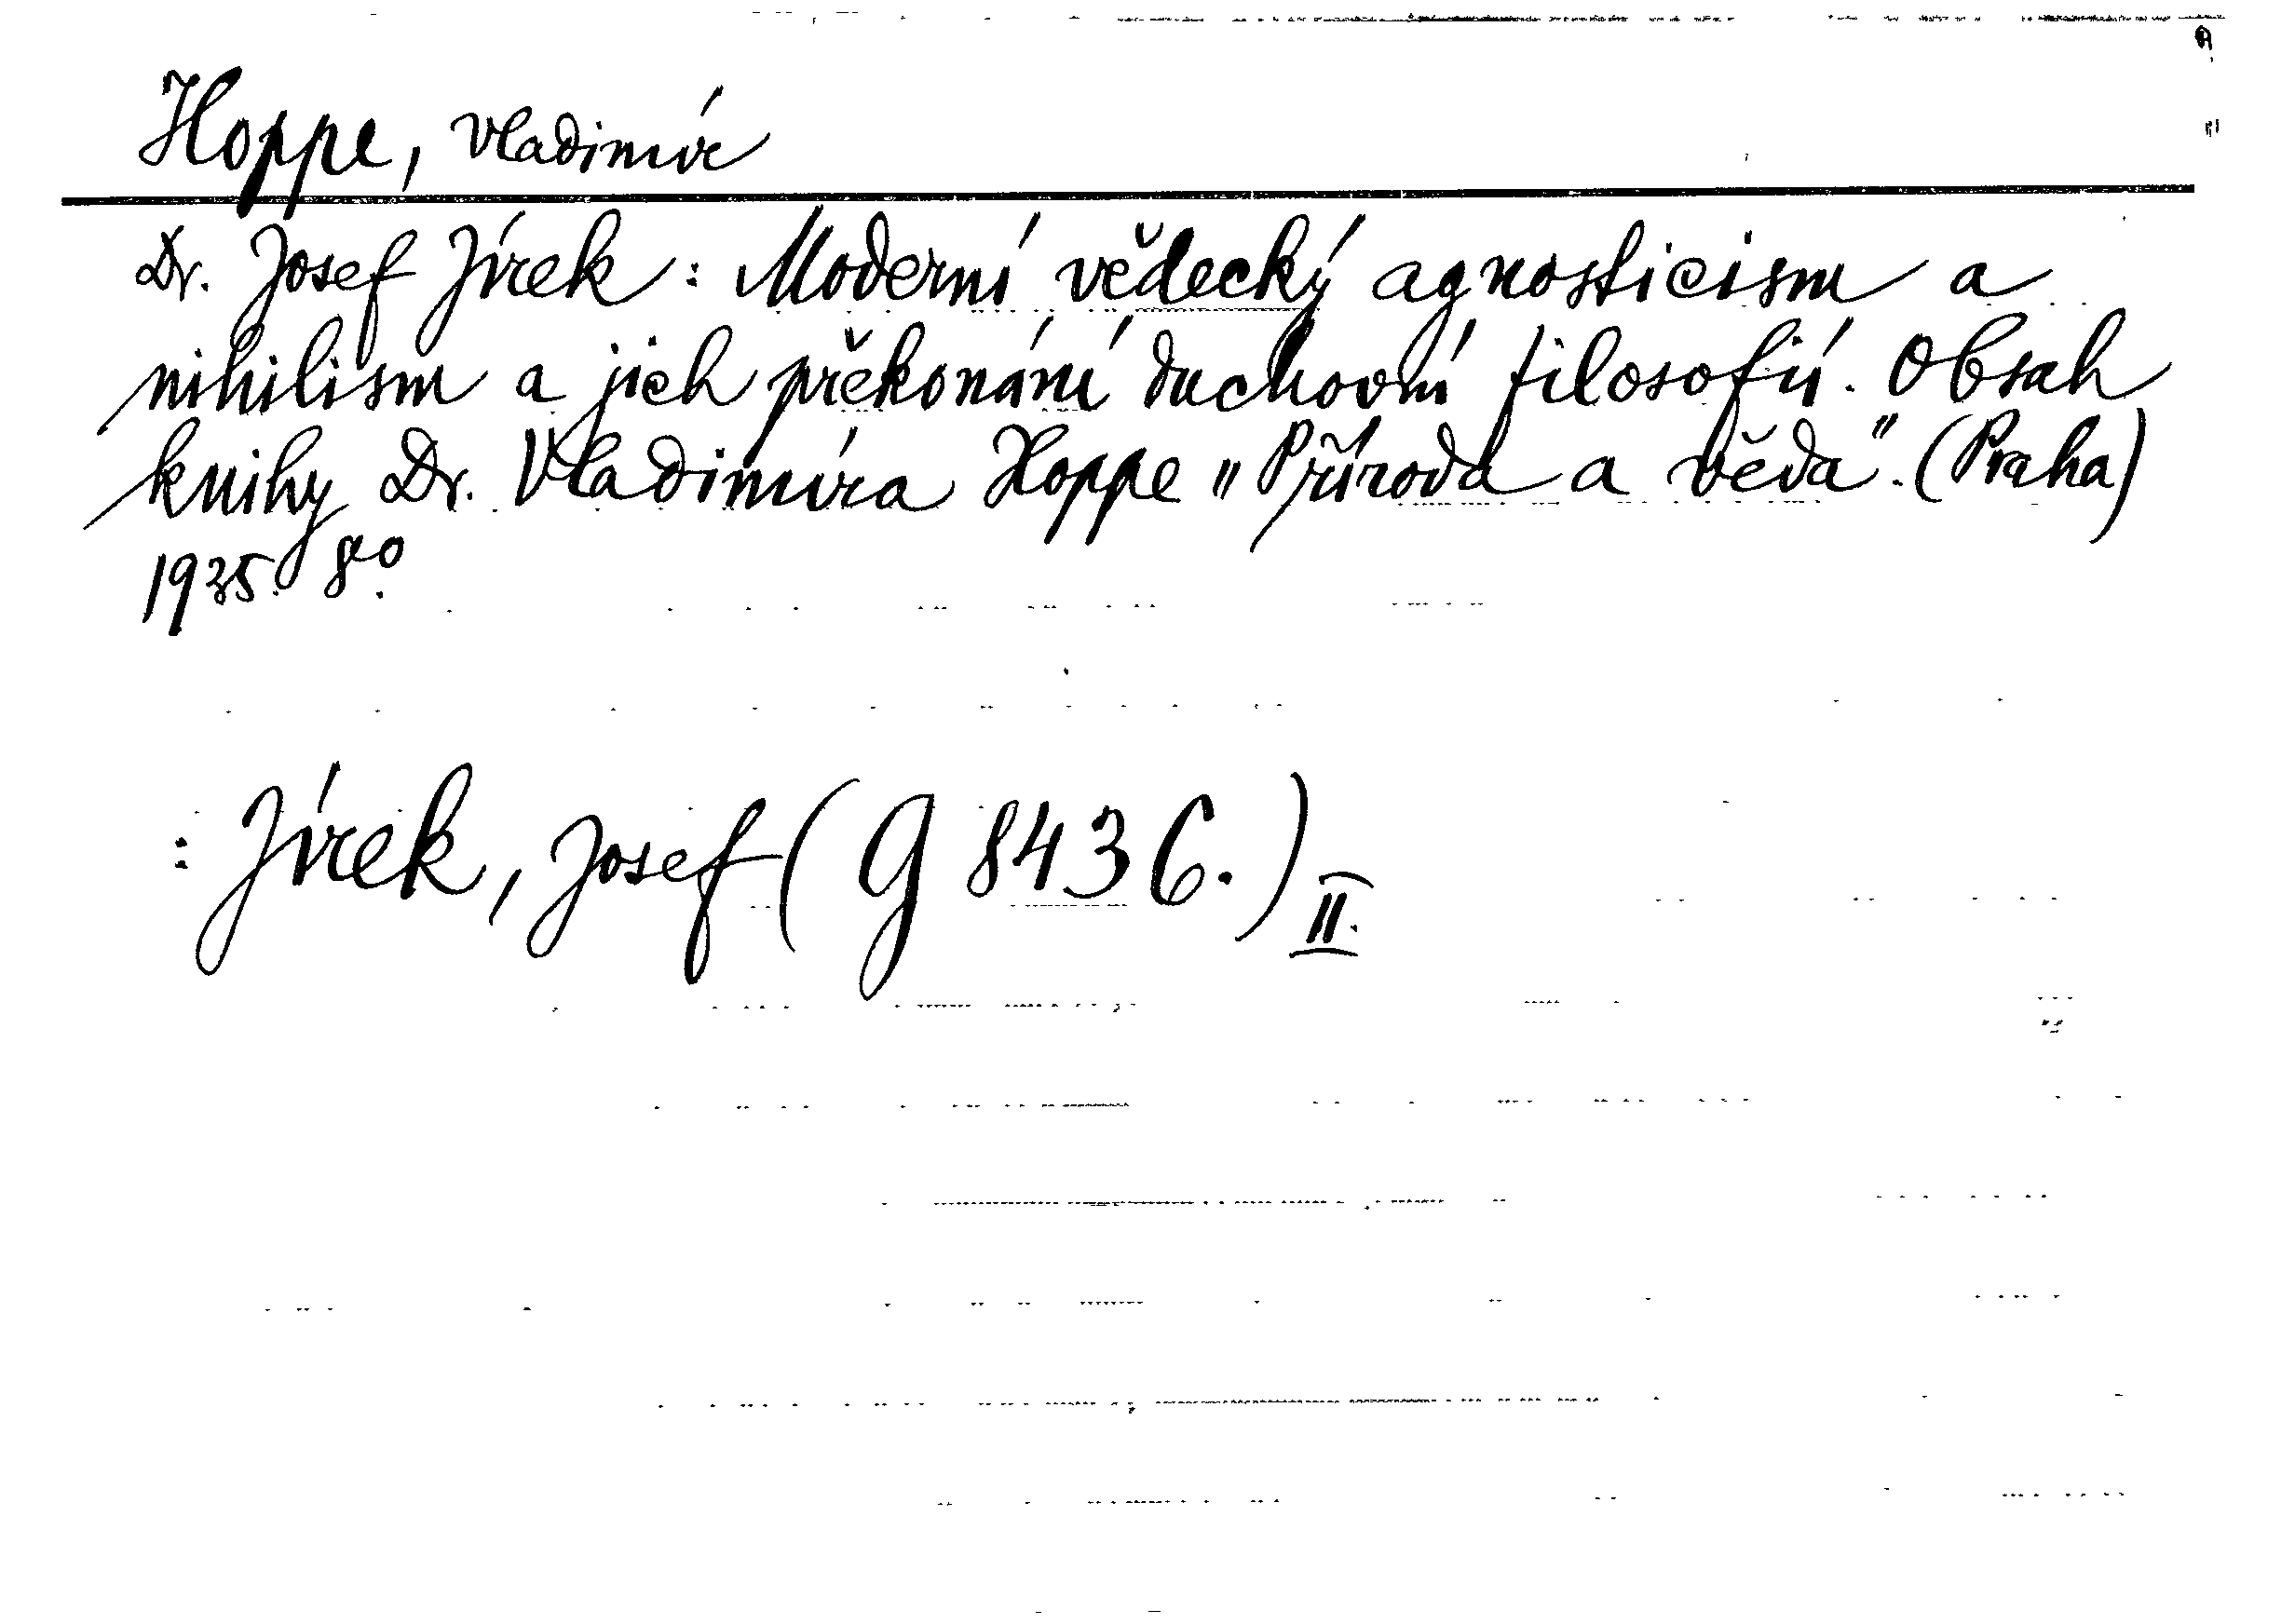 Hoppe, Vladimír
Dr. Josef Jírek: Moderní vědecký agnosticism a
nihilism a jich překonání duchovní filosofií. Obsah
knihy Dr. Vladimíra Hoppe „Příroda a věda". (Praha)
1925. 8º.
: Jírek, Josef (G 8436.) II.